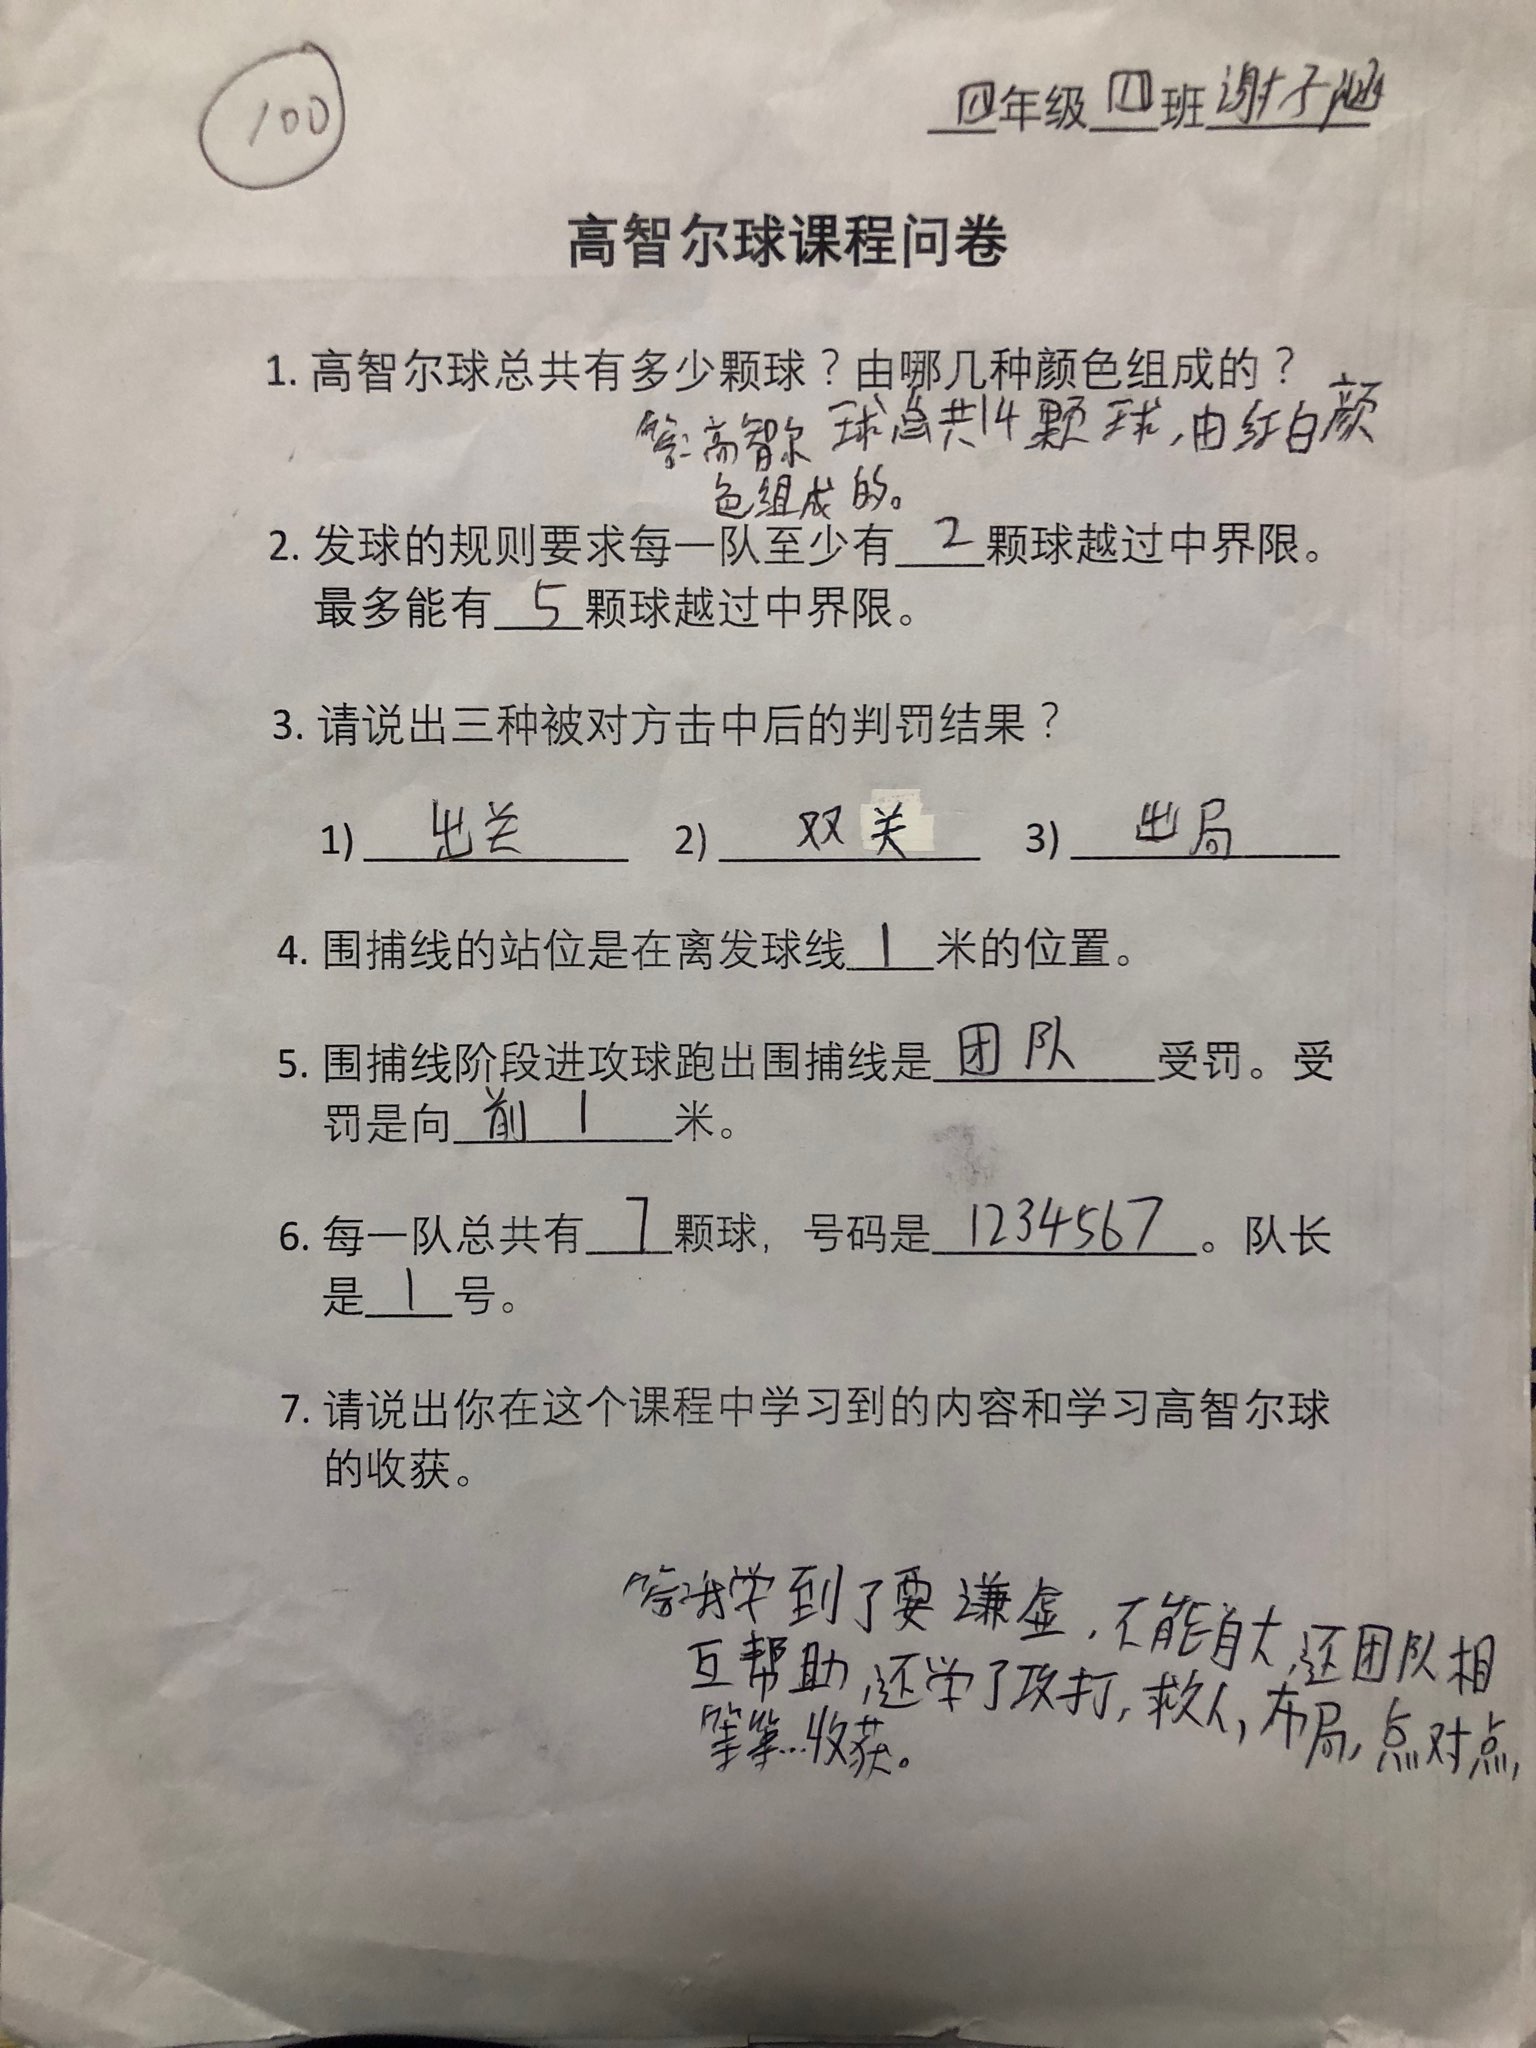 100
四年级四班谢子涵
高智尔球课程问卷
1. 高智尔球总共有多少颗球？由哪几种颜色组成的？
答:高智尔球总共14颗球,由红白颜
色组成的。
2. 发球的规则要求每一队至少有2颗球越过中界限。
最多能有5颗球越过中界限。
3. 请说出三种被对方击中后的判罚结果？
1) 出关 2) 双关 3) 出局
4. 围捕线的站位是在离发球线1米的位置。
5. 围捕线阶段进攻球跑出围捕线是团队受罚。受
罚是向前1米。
6. 每一队总共有7颗球，号码是1234567。队长
是1号。
7. 请说出你在这个课程中学习到的内容和学习高智尔球
的收获。
答:我学到了要谦虚,不能自大,还团队相
互帮助,还学了攻打,救人,布局,点对点,
等等…收获。